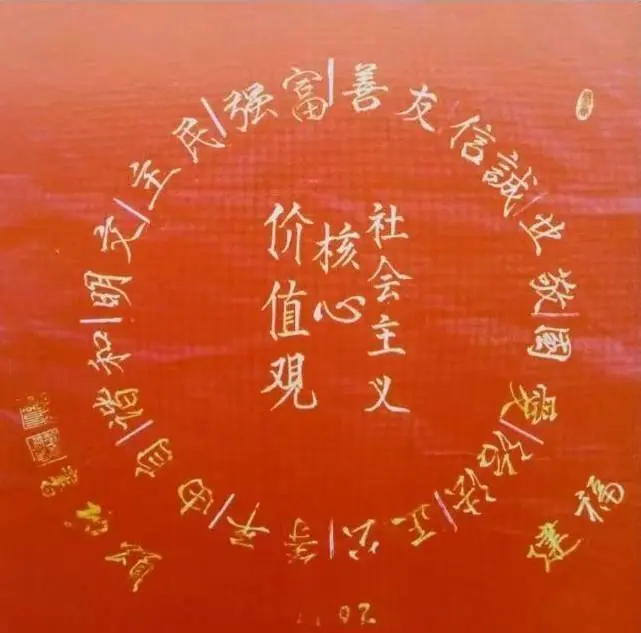 社会主义
核心
价值观
富强|民主|文明|和谐|自由|平等|公正|法治|愛國|敬业|誠信|友善
福建
書